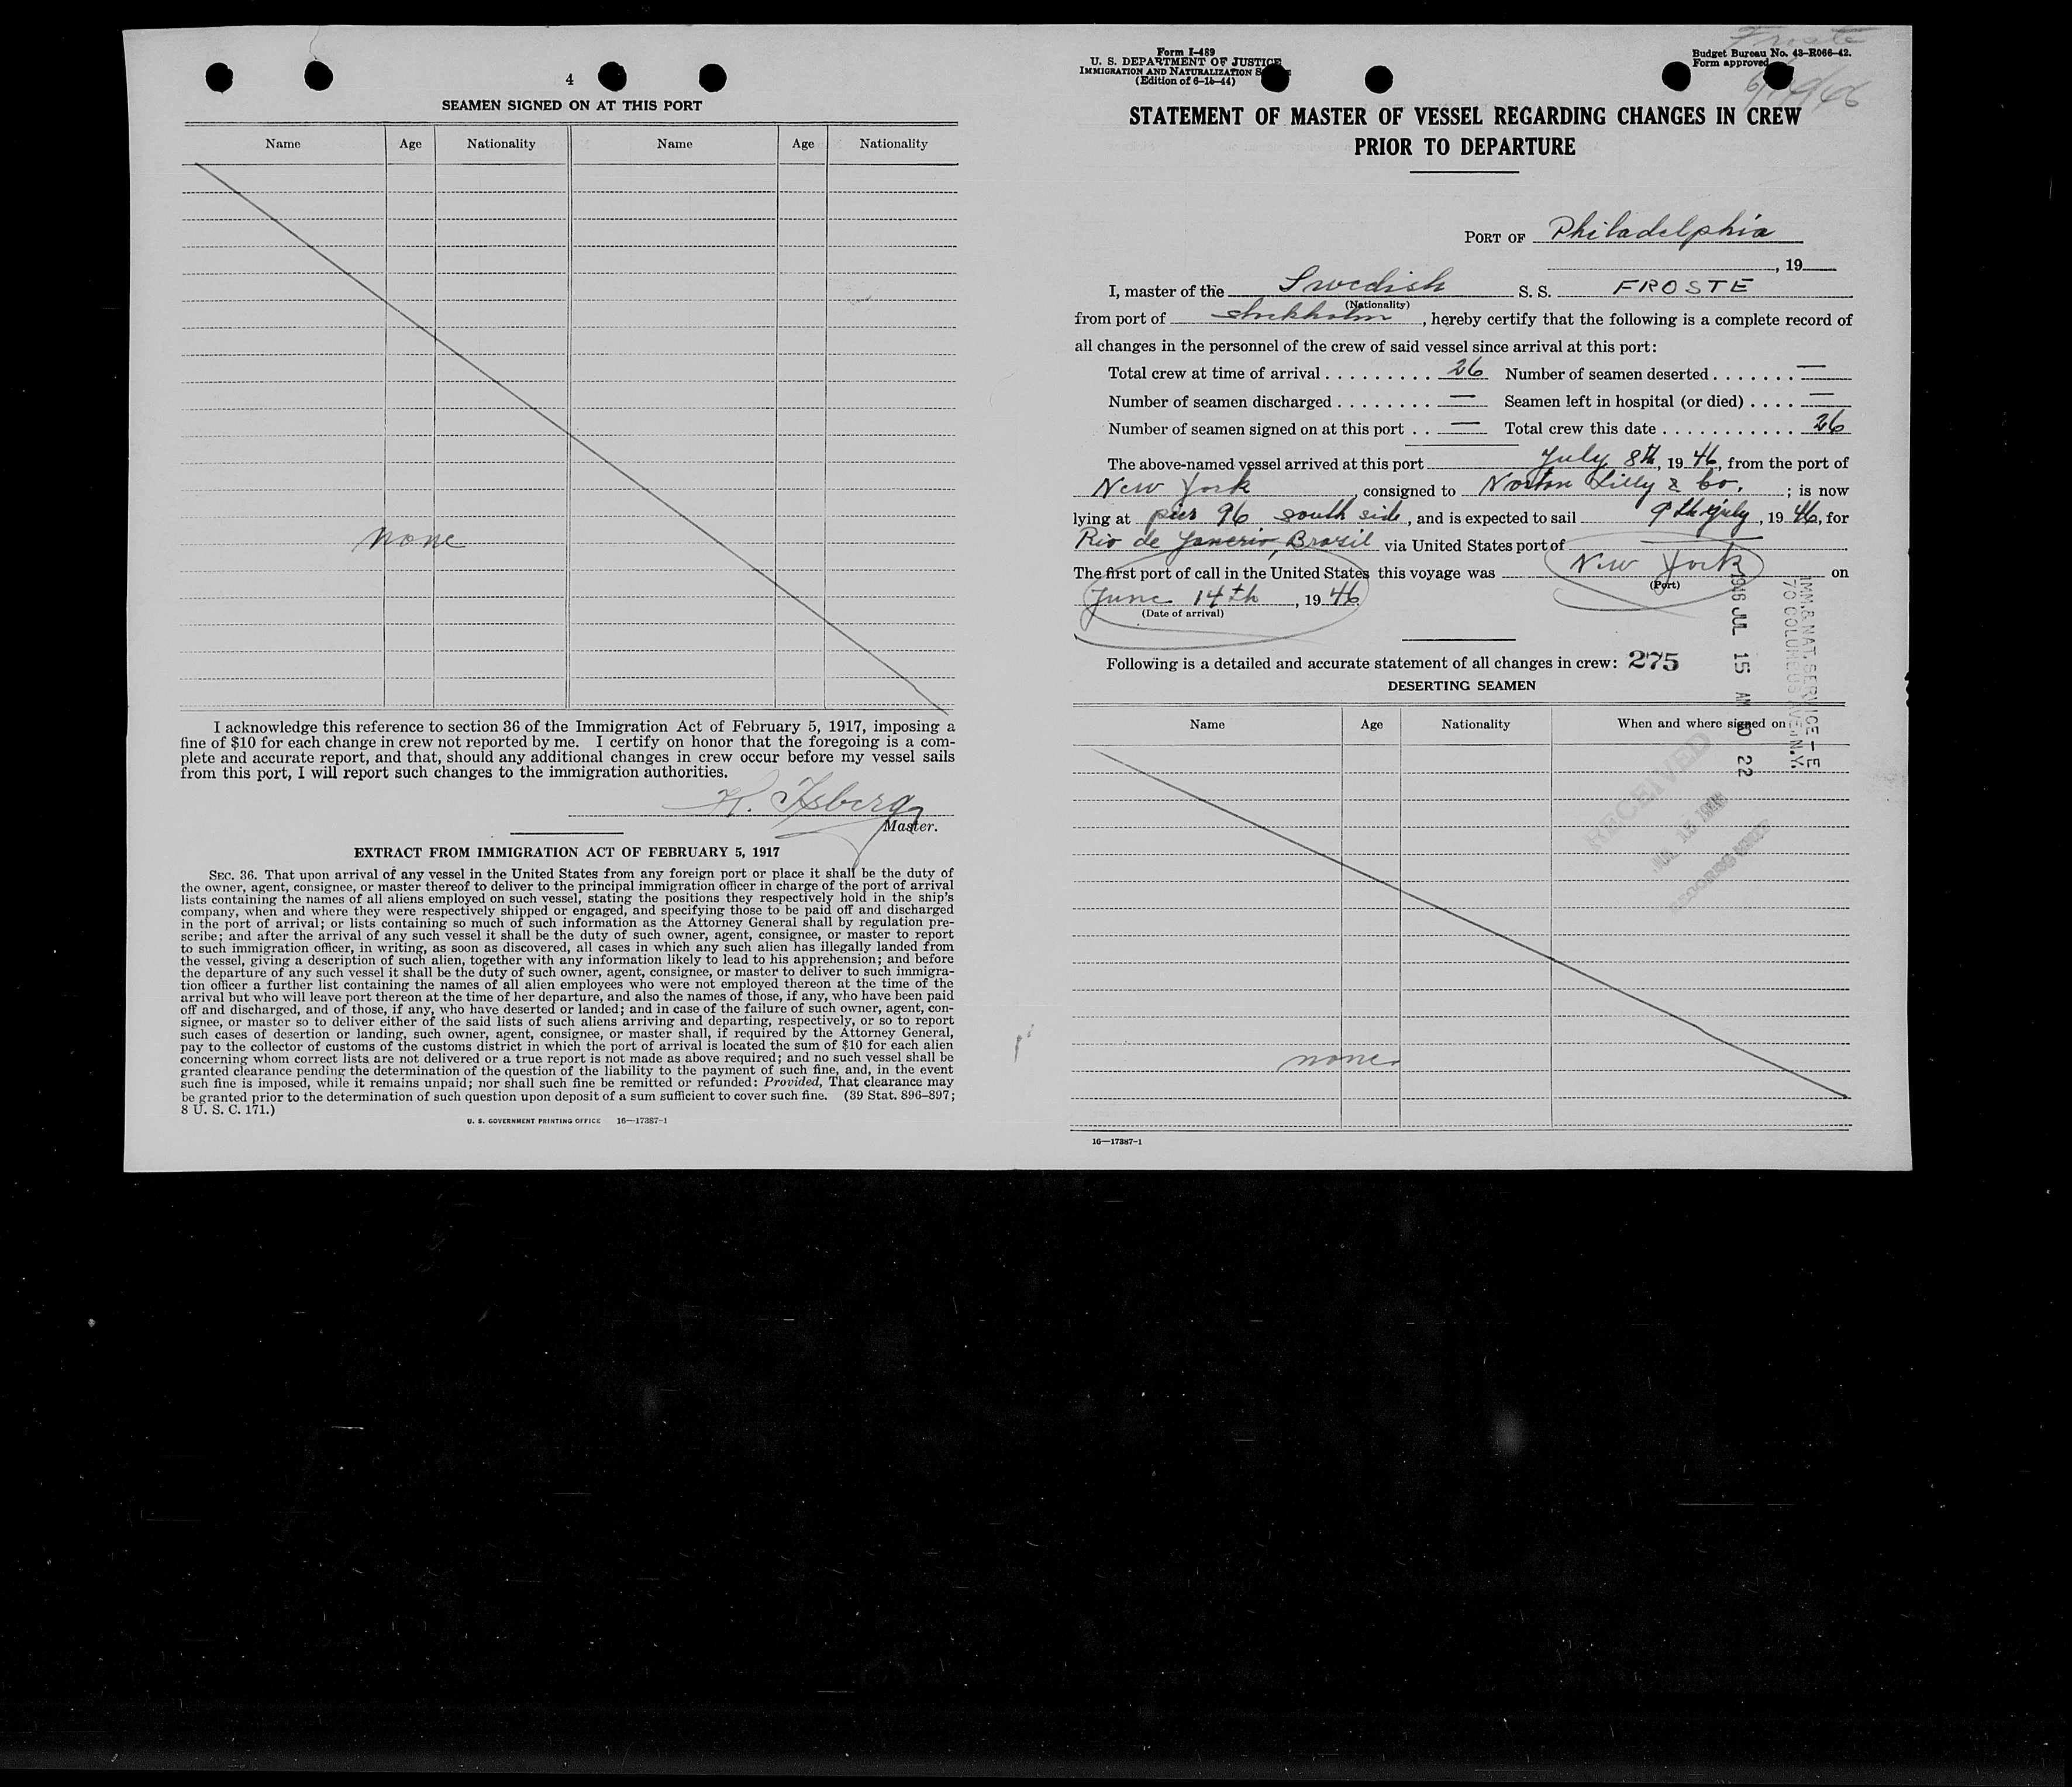 4
SEAMEN SIGNED ON AT THIS PORT
Name Age Nationality Name Age Nationality
none
I acknowledge this reference to section 36 of the Immigration Act of February 5, 1917, imposing a
fine of $10 for each change in crew not reported by me. I certify on honor that the foregoing is a com-
plete and accurate report, and that, should any additional changes in crew occur before my vessel sails
from this port, I will report such changes to the immigration authorities.
Master.
EXTRACT FROM IMMIGRATION ACT OF FEBRUARY 5, 1917
SEC. 36. That upon arrival of any vessel in the United States from any foreign port or place it shall be the duty of
the owner, agent, consignee, or master thereof to deliver to the principal immigration officer in charge of the port of arrival
lists containing the names of all aliens employed on such vessel, stating the positions they respectively hold in the ship's
company, when and where they were respectively shipped or engaged, and specifying those to be paid off and discharged
in the port of arrival; or lists containing so much of such information as the Attorney General shall by regulation pre-
scribe; and after the arrival of any such vessel it shall be the duty of such owner, agent, consignee, or master to report
to such immigration officer, in writing, as soon as discovered, all cases in which any such alien has illegally landed from
the vessel, giving a description of such alien, together with any information likely to lead to his apprehension; and before
the departure of any such vessel it shall be the duty of such owner, agent, consignee, or master to deliver to such immigra-
tion officer a further list containing the names of all alien employees who were not employed thereon at the time of the
arrival but who will leave port thereon at the time of her departure, and also the names of those, if any, who have been paid
off and discharged, and of those, if any, who have deserted or landed; and in case of the failure of such owner, agent, con-
signee, or master so to deliver either of the said lists of such aliens arriving and departing, respectively, or so to report
such cases of desertion or landing, such owner, agent, consignee, or master shall, if required by the Attorney General,
pay to the collector of customs of the customs district in which the port of arrival is located the sum of $10 for each alien
concerning whom correct lists are not delivered or a true report is not made as above required; and no such vessel shall be
granted clearance pending the determination of the question of the liability to the payment of such fine, and, in the event
such fine is imposed, while it remains unpaid; nor shall such fine be remitted or refunded: Provided, That clearance may
be granted prior to the determination of such question upon deposit of a sum sufficient to cover such fine. (39 Stat. 896–897;
8 U. S. C. 171.)
U. S. GOVERNMENT PRINTING OFFICE 16—17387-1
Froste
Form I-489
U. S. DEPARTMENT OF JUSTICE
IMMIGRATION AND NATURALIZATION
(Edition of 6-15-44)
Budget Bureau No. 43-R066-42.
Form approved
STATEMENT OF MASTER OF VESSEL REGARDING CHANGES IN CREW
PRIOR TO DEPARTURE
PORT OF Philadelphia
, 19
I, master of the Swedish S. S. FROSTE
(Nationality)
from port of Stockholm, hereby certify that the following is a complete record of
all changes in the personnel of the crew of said vessel since arrival at this port:
Total crew at time of arrival 26 Number of seamen deserted —
Number of seamen discharged — Seamen left in hospital (or died) —
Number of seamen signed on at this port — Total crew this date 26
The above-named vessel arrived at this port July 8th, 1946, from the port of
New York, consigned to Norton Lilly & Co. ; is now
lying at pier 96 south side, and is expected to sail 9th july, 1946, for
Rio de Janerio, Brazil via United States port of —
The first port of call in the United States this voyage was New York on
(Port)
June 14th, 1946
(Date of arrival)
Following is a detailed and accurate statement of all changes in crew: 275
DESERTING SEAMEN
Name Age Nationality When and where signed on
none
16—17387-1
IMM. & NAT. SERVICE
70 COLUMBUS AVE. N.Y.
1946 JUL 15 AM 22
RECEIVED